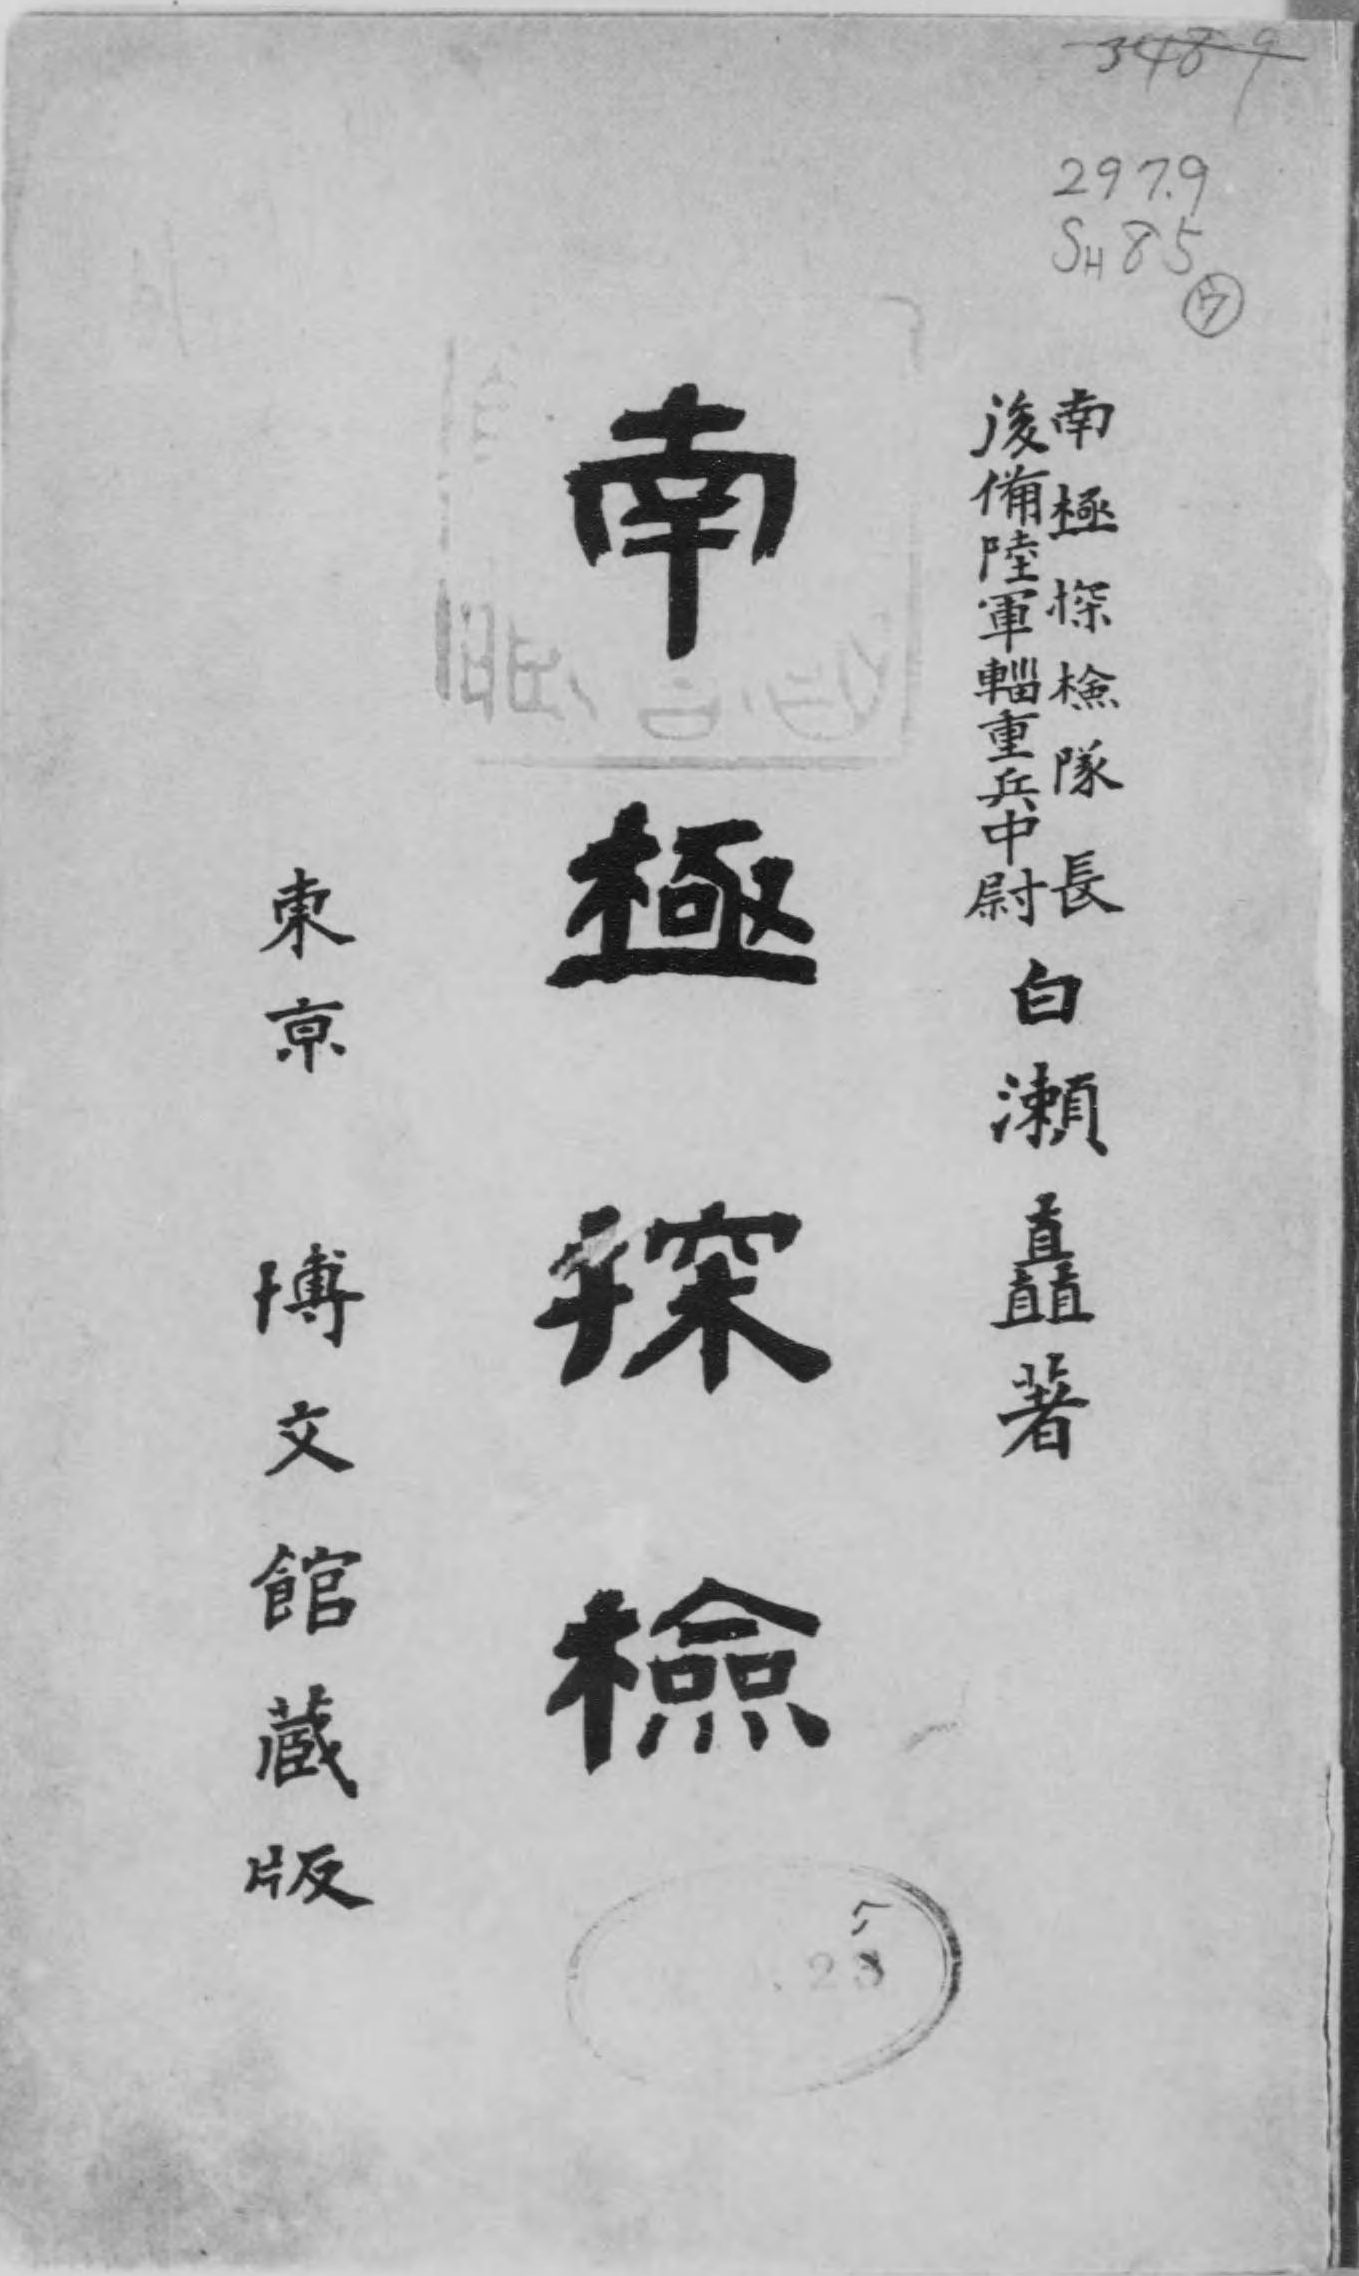 3489
297.9
SH85
ウ
南極探檢隊長
後備陸軍輜重兵中尉
白瀬矗著
南極探檢
東京 博文館蔵版